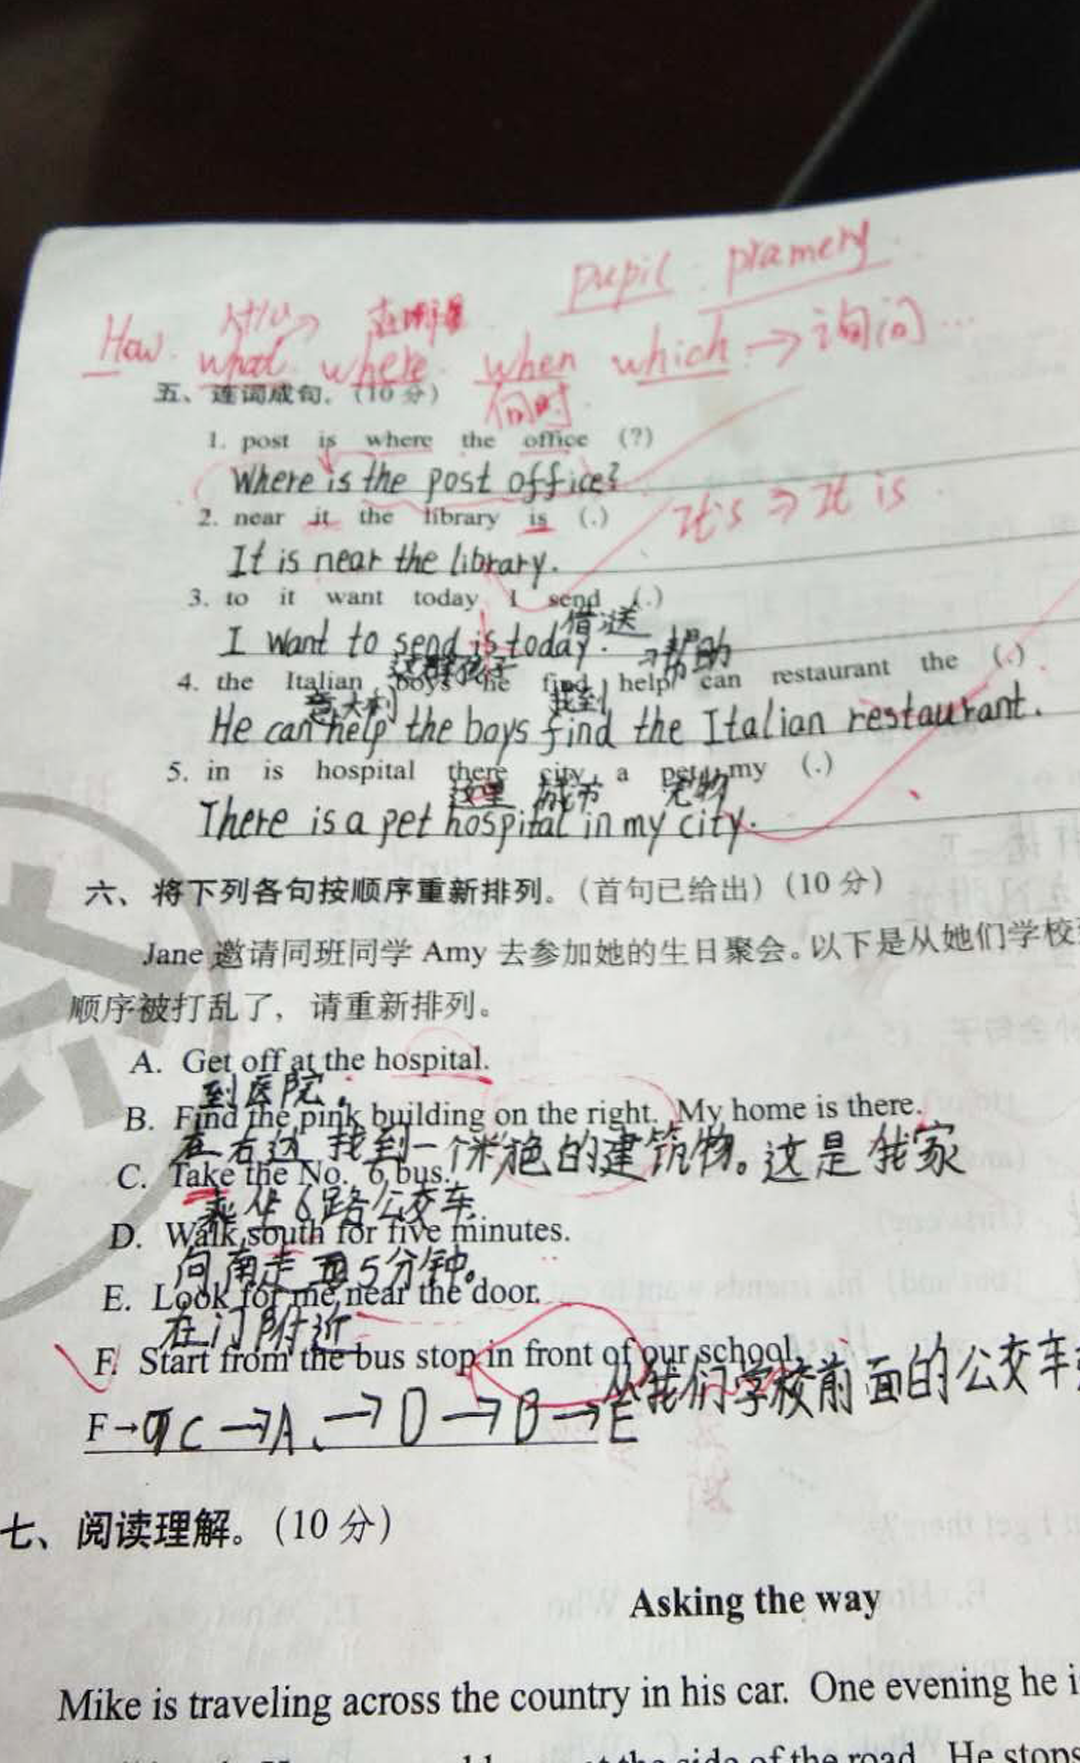 pupil pramery
How what where when which → 询问...
何时
五、连词成句。(10分)
1. post is where the office (?)
Where is the post office?
It's ⇒ It is
2. near it the library is (.)
It is near the library.
3. to it want today I send (.)
借送
I want to send is today.
→帮助
4. the Italian boys he find help can restaurant the (.)
意大利 找到
He can help the boys find the Italian restaurant.
5. in is hospital there city a pet my (.)
这里 城市 宠物
There is a pet hospital in my city.
六、将下列各句按顺序重新排列。(首句已给出)(10分)
Jane 邀请同班同学 Amy 去参加她的生日聚会。以下是从她们学校
顺序被打乱了，请重新排列。
A. Get off at the hospital.
到医院.
B. Find the pink building on the right. My home is there.
在右边 找到一个粉色的建筑物。这是我家
C. Take the No. 6 bus.
乘坐6路公交车
D. Walk south for five minutes.
向南走 5分钟。
E. Look for me near the door.
在门附近
F. Start from the bus stop in front of our school.
从我们学校前面的公交车
F→C→A→D→B→E
七、阅读理解。(10分)
Asking the way
Mike is traveling across the country in his car. One evening he i
at the side of the road. He stops